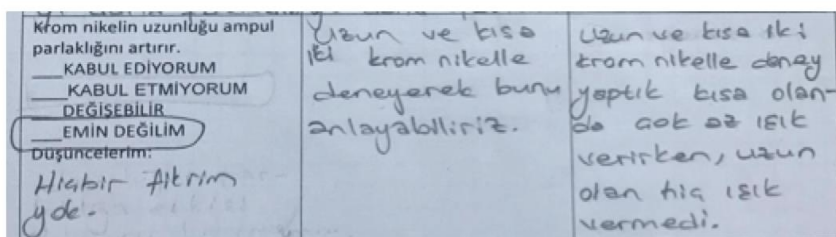 Krom nikelin uzunluğu ampul
parlaklığını artırır.
___KABUL EDİYORUM
___KABUL ETMİYORUM
___DEĞİŞEBİLİR
___EMİN DEĞİLİM
Düşüncelerim:
Hiçbir fikrim
yok.
Uzun ve kısa
iki krom nikelle
deneyerek bunu
anlayabiliriz.
Uzun ve kısa iki
krom nikelle deney
yaptık kısa olan-
da çok az ışık
verirken, uzun
olan hiç ışık
vermedi.